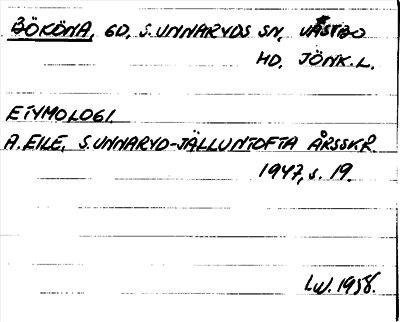 BÖKÖNA, GD, S. UNNARYDS SN, VÄSTBO
HD, JÖNK. L.
ETYMOLOGI.
A. EILE, S. UNNARYD-JÄLLUNTOFTA ÅRSSKR.
1947, s. 19.
LW. 1958.